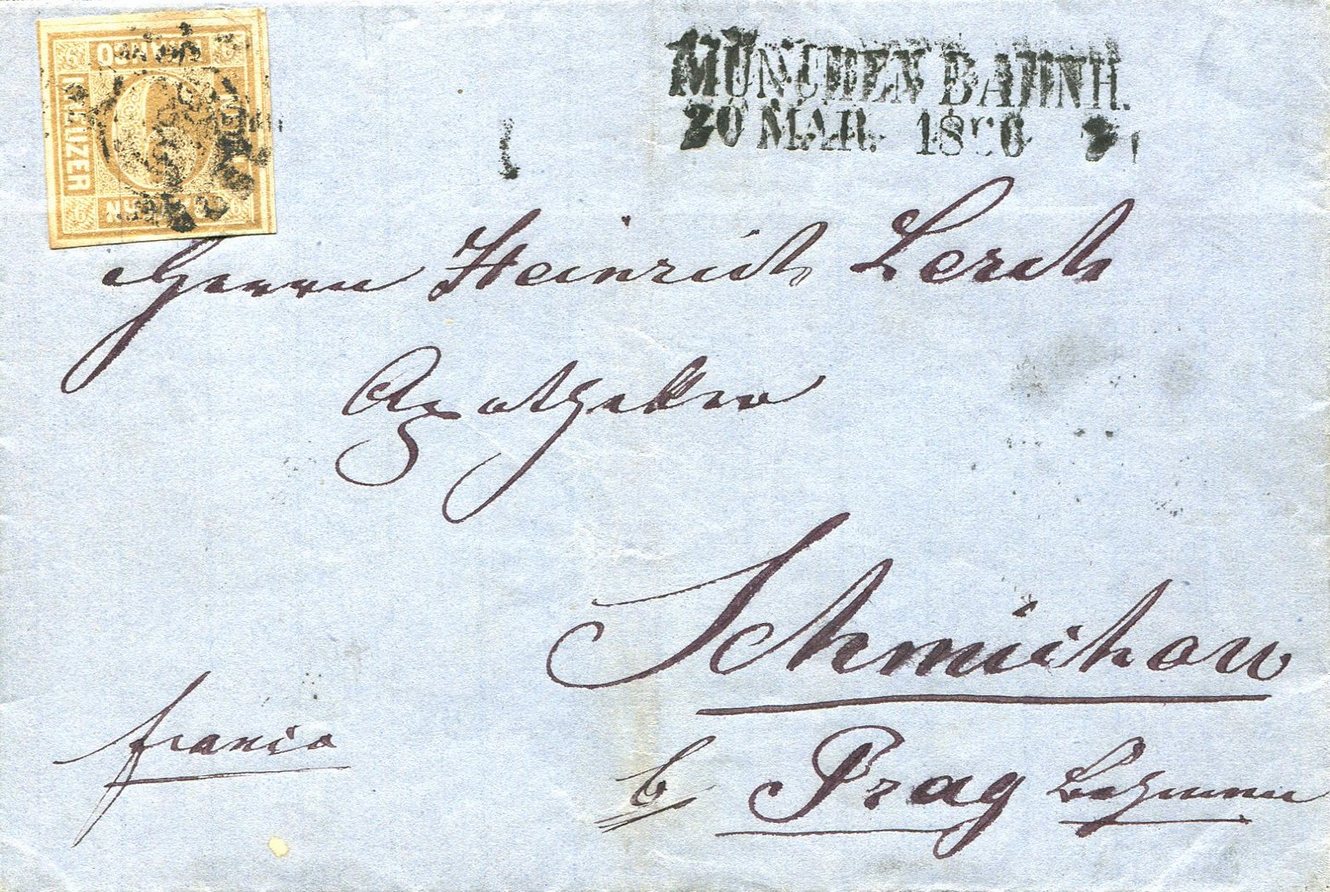 FRANCO
KREUZER
MÜNCHEN BAHNH.
20 MAR.
Herrn Heinrich Lerch
Apotheker
Schmichow
franco
b/ Prag Böhmen